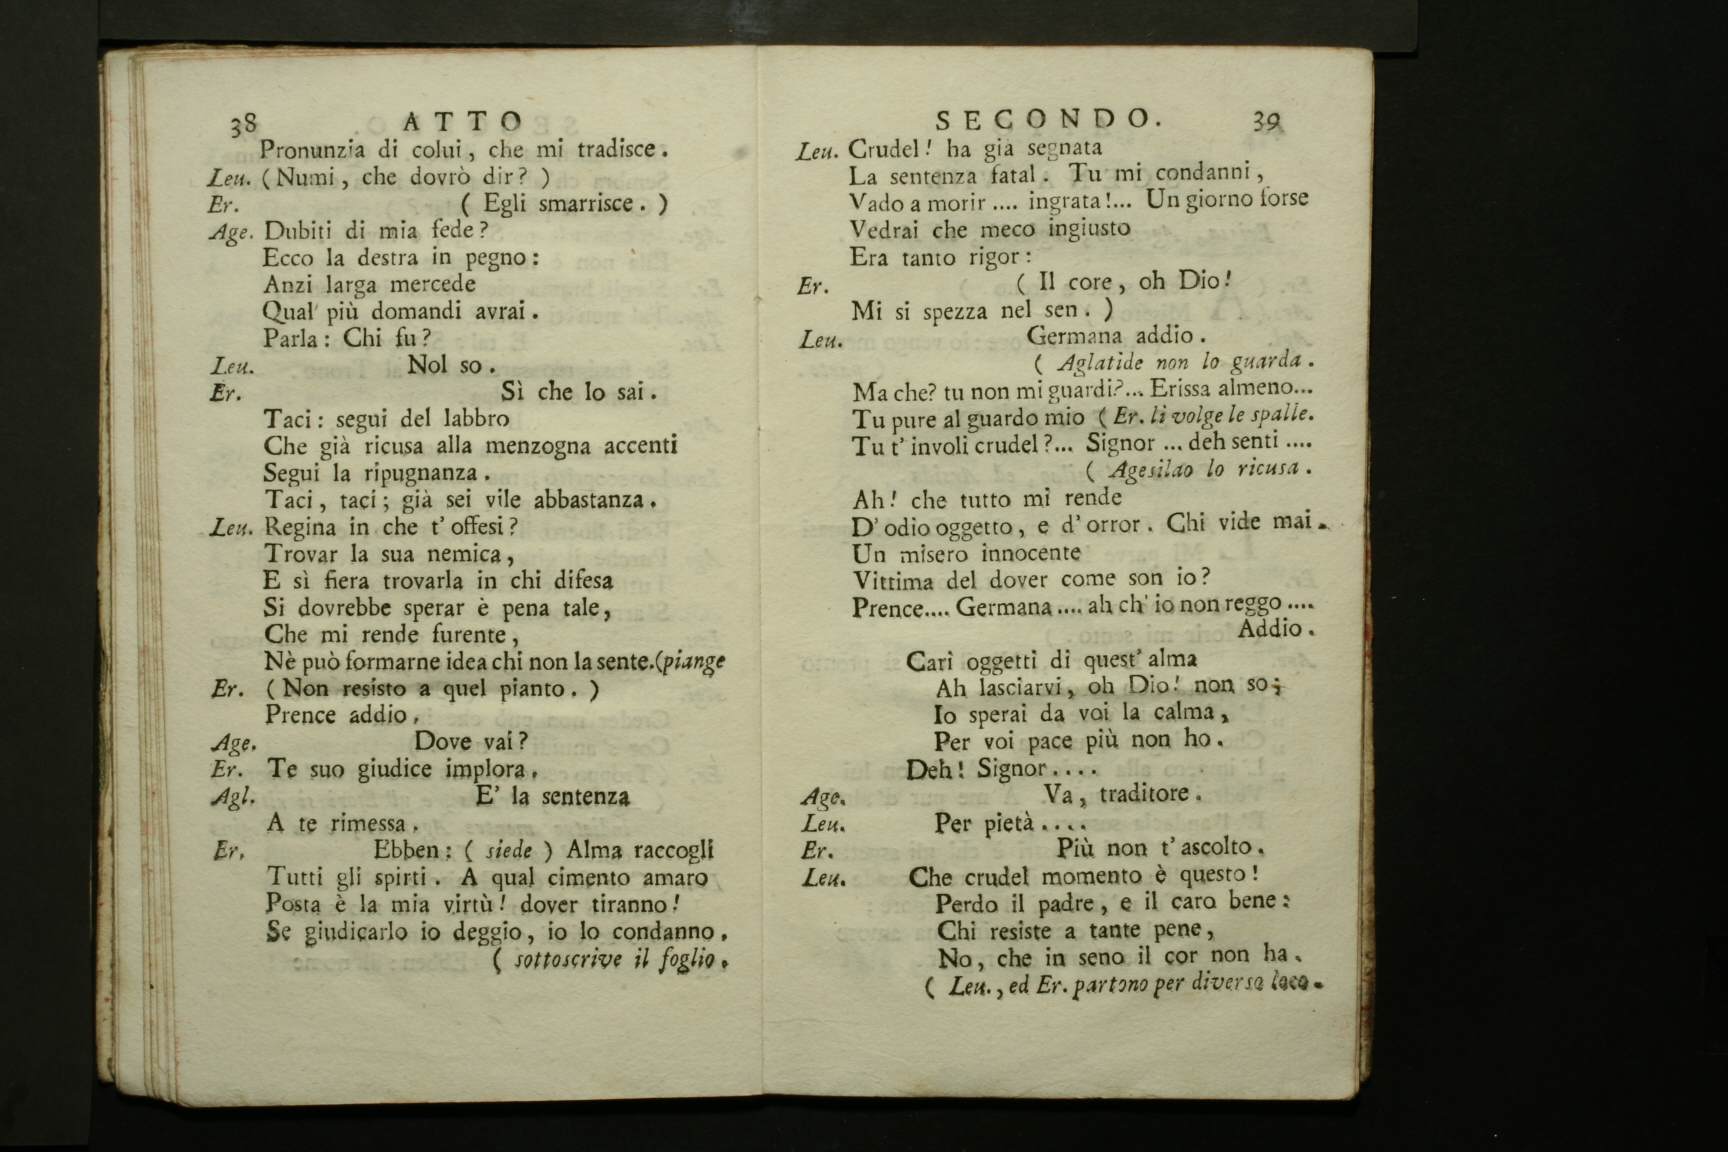 38 ATTO
Pronunzia di colui, che mi tradisce.
Leu. (Numi, che dovrò dir? )
Er. ( Egli smarrisce. )
Age. Dubiti di mia fede?
Ecco la destra in pegno:
Anzi larga mercede
Qual più domandi avrai.
Parla: Chi fu?
Leu. Nol so.
Er. Sì che lo sai.
Taci: segui del labbro
Che già ricusa alla menzogna accenti
Segui la ripugnanza.
Taci, taci; già sei vile abbastanza.
Leu. Regina in che t'offesi?
Trovar la sua nemica,
E sì fiera trovarla in chi difesa
Si dovrebbe sperar è pena tale,
Che mi rende furente,
Nè può formarne idea chi non la sente.(piange
Er. (Non resisto a quel pianto. )
Prence addio.
Age. Dove vai?
Er. Te suo giudice implora.
Agl. E' la sentenza
A te rimessa.
Er. Ebben: ( siede ) Alma raccogli
Tutti gli spirti. A qual cimento amaro
Posta è la mia virtù! dover tiranno!
Se giudicarlo io deggio, io lo condanno.
( sottoscrive il foglio.
SECONDO. 39
Leu. Crudel! ha già segnata
La sentenza fatal. Tu mi condanni,
Vado a morir .... ingrata!... Un giorno forse
Vedrai che meco ingiusto
Era tanto rigor:
Er. ( Il core, oh Dio!
Mi si spezza nel sen. )
Leu. Germana addio.
( Aglatide non lo guarda.
Ma che? tu non mi guardi?... Erissa almeno...
Tu pure al guardo mio (Er. li volge le spalle.
Tu t'involi crudel?... Signor ... deh senti ....
( Agesilao lo ricusa.
Ah! che tutto mi rende
D'odio oggetto, e d'orror. Chi vide mai
Un misero innocente
Vittima del dover come son io?
Prence.... Germana .... ah ch'io non reggo ....
Addio.
Cari oggetti di quest'alma
Ah lasciarvi, oh Dio! non so;
Io sperai da voi la calma,
Per voi pace più non ho.
Deh! Signor....
Age. Va, traditore.
Leu. Per pietà....
Er. Più non t'ascolto.
Leu. Che crudel momento è questo!
Perdo il padre, e il caro bene:
Chi resiste a tante pene,
No, che in seno il cor non ha.
( Leu., ed Er. partono per diverso loco.